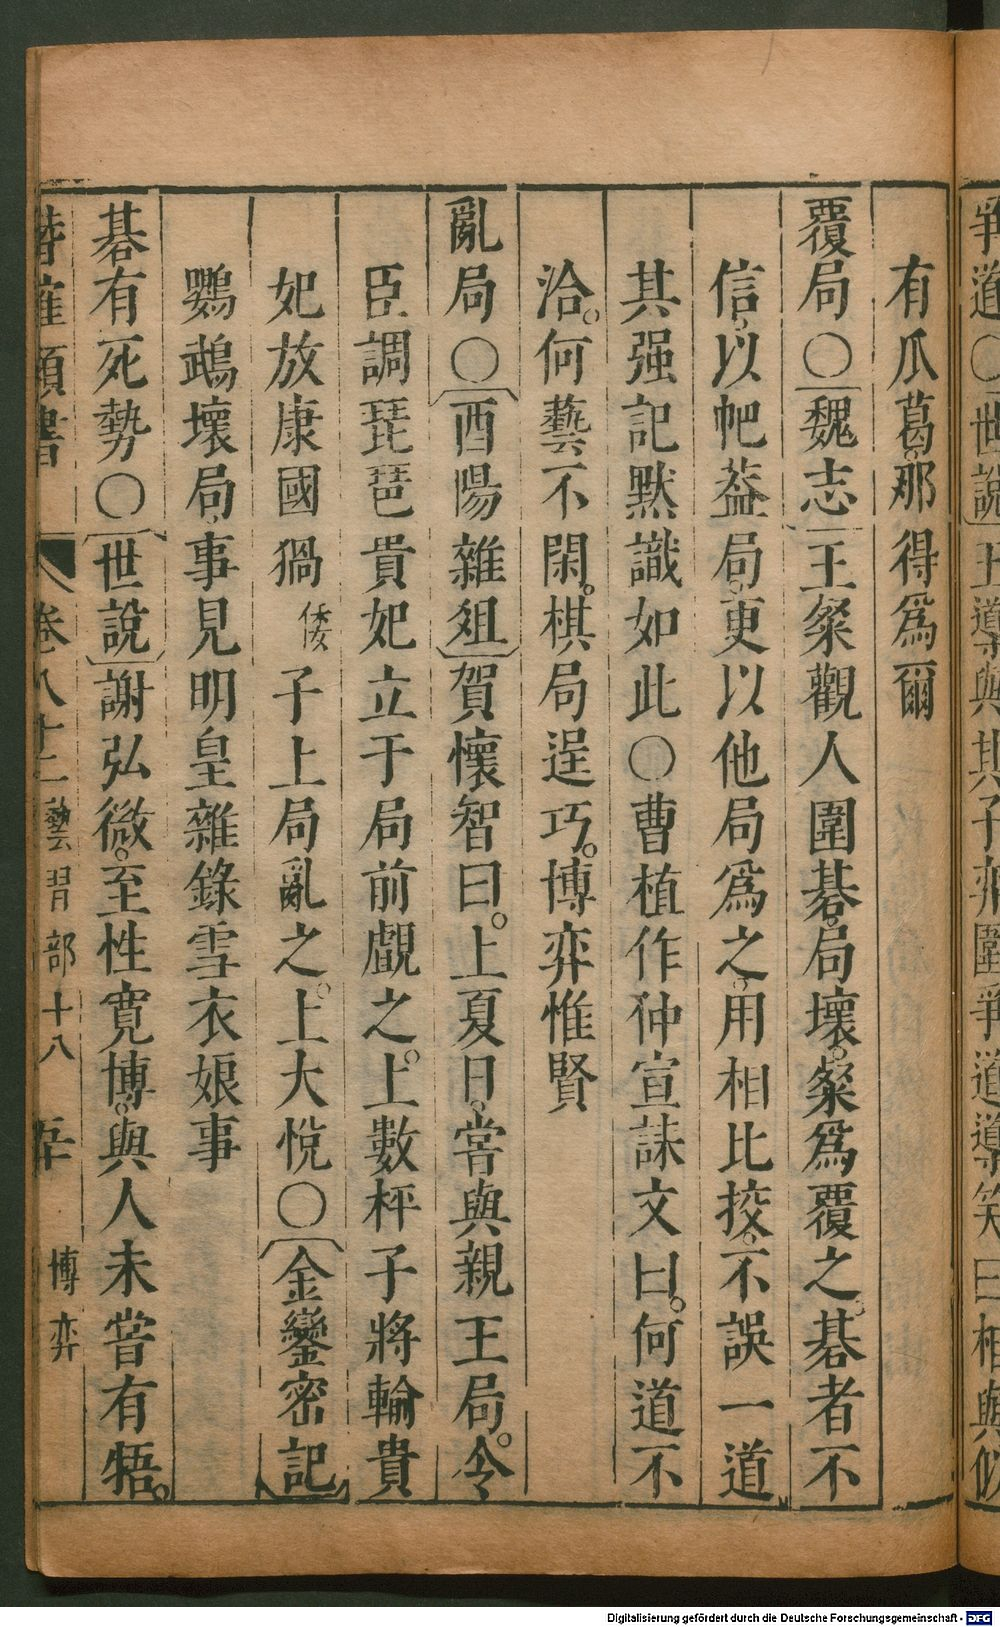 爭道〇世說王導與其子弈圍爭道導笑曰相與似
有瓜葛。那得爲爾
覆局〇魏志王粲觀人圍碁。局壞。粲爲覆之。碁者不
信。以帊葢局。更以他局爲之。用相比挍。不誤一道
其强記默識如此〇曹植作仲宣誄文曰。何道不
洽。何藝不閑。棋局逞巧。博弈惟賢
亂局〇酉陽雜俎賀懷智曰。上夏日。甞與親王局。令
臣調琵琶貴妃立于局前觀之。上數枰子將輸貴
妃放康國猧倭子上局亂之。上大悅〇金鑾密記
鸚鵡壞局。事見明皇雜錄雪衣娘事
碁有死勢〇世說謝弘微。至性寬博。與人未甞有牾。
卷八十二 藝習部十八 博弈
Digitalisierung gefördert durch die Deutsche Forschungsgemeinschaft - DFG